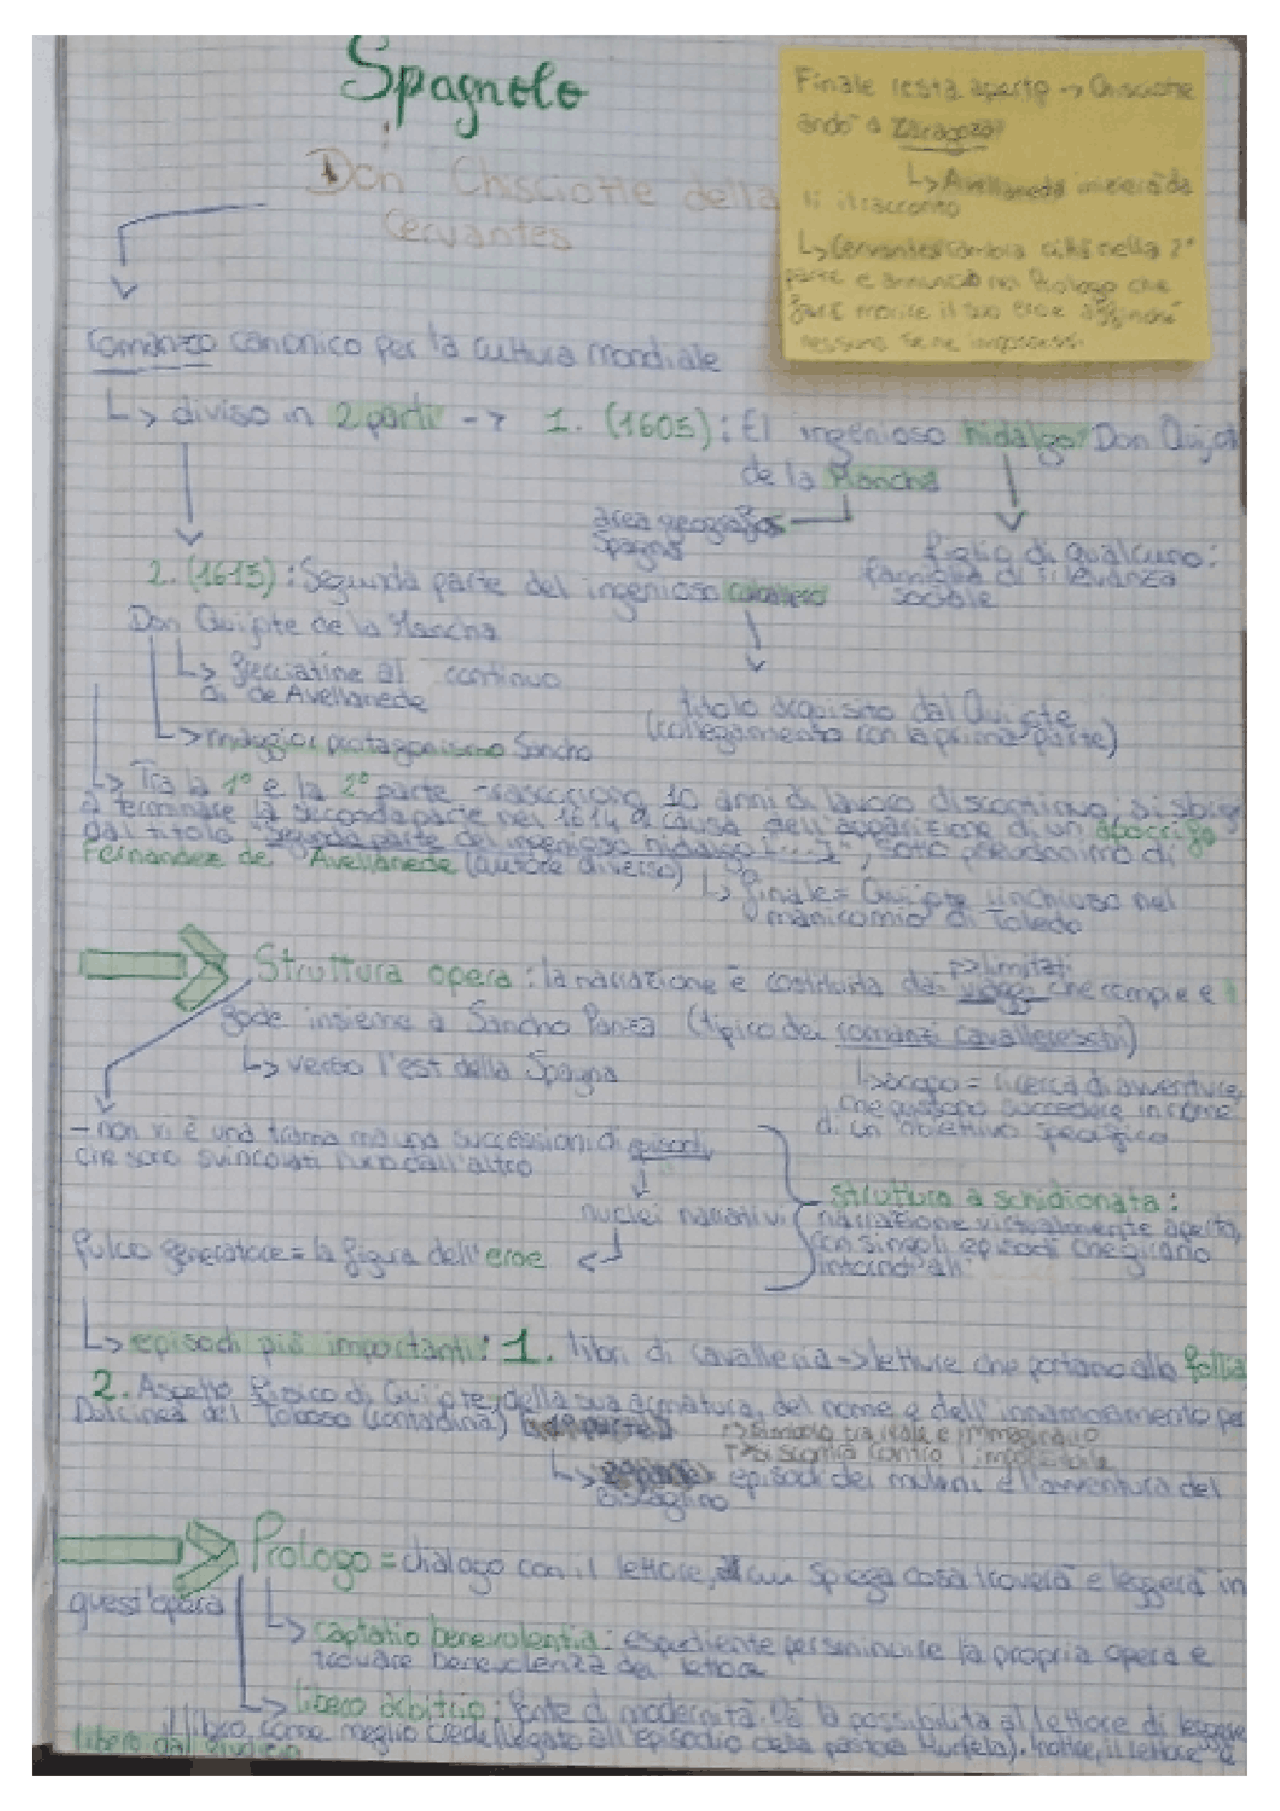 Spagnolo
Don Chisciotte della
Cervantes
Finale resta aperto -> Chisciotte
andò a Zaragoza?
↳ Avellaneda inizierà da
lì il racconto
↳ Cervantes cambia città nella 2ª
parte e annuncia nel Prologo che
farà morire il suo eroe affinché
nessuno se ne impossessi
romanzo canonico per la cultura mondiale
↳ diviso in 2 parti -> 1. (1605): El ingenioso hidalgo Don Quijot
de la Mancha
area geografica
Spagna
figlio di qualcuno:
famiglia di rilevanza
sociale
2. (1615): Segunda parte del ingenioso caballero
Don Quijote de la Mancha
↳ frecciatine al continuo
di de Avellanede
↳ maggior protagonismo Sancho
titolo acquisito dal Quijote
(collegamento con la prima parte)
↳ Tra la 1ª e la 2ª parte trascorrono 10 anni di lavoro discontinuo; si sbriga
a terminare la seconda parte nel 1614 a causa dell'apparizione di un apocrifo
dal titolo "Segunda parte del ingenioso hidalgo [...]", sotto pseudonimo di
Fernandez de Avellanede (autore diverso)
↳ finale = Quijote rinchiuso nel
manicomio di Toledo
Struttura opera: la narrazione è costituita dai viaggi che compie e
-> limitati
gode insieme a Sancho Panza (tipico dei romanzi cavallereschi)
↳ verso l'est della Spagna
↳ scopo = ricerca di avventure,
che possono succedere in nome
di un obiettivo specifico
- non vi è una trama ma una successioni di episodi,
che sono svincolati l'uno dall'altro
nuclei narrativi
fulco generatore = la figura dell'eroe
struttura a schidionata:
narrazione virtualmente aperta,
con singoli episodi che girano
intorno
↳ episodi più importanti: 1. libri di cavalleria -> letture che portano alla follia
2. Aspetto fisico di Quijote, della sua armatura, del nome e dell'innamoramento per
Dulcinea del Toboso (contadina)
-> simbolo tra reale e immaginario
-> si scontra contro l'impossibile
↳ episodi dei mulini e l'avventura del
Biscaglino
Prologo = dialogo con il lettore, cui spiega cosa troverà e leggerà in
quest'opera
↳ captatio benevolentia: espediente per sminuire la propria opera e
trovare benevolenza dei lettore
↳ libero arbitrio: fonte di modernità. Dà la possibilità al lettore di leggere
il libro come meglio crede (legato all'episodio della pastora Marcela). Inoltre, il lettore è
libero dal giudizio